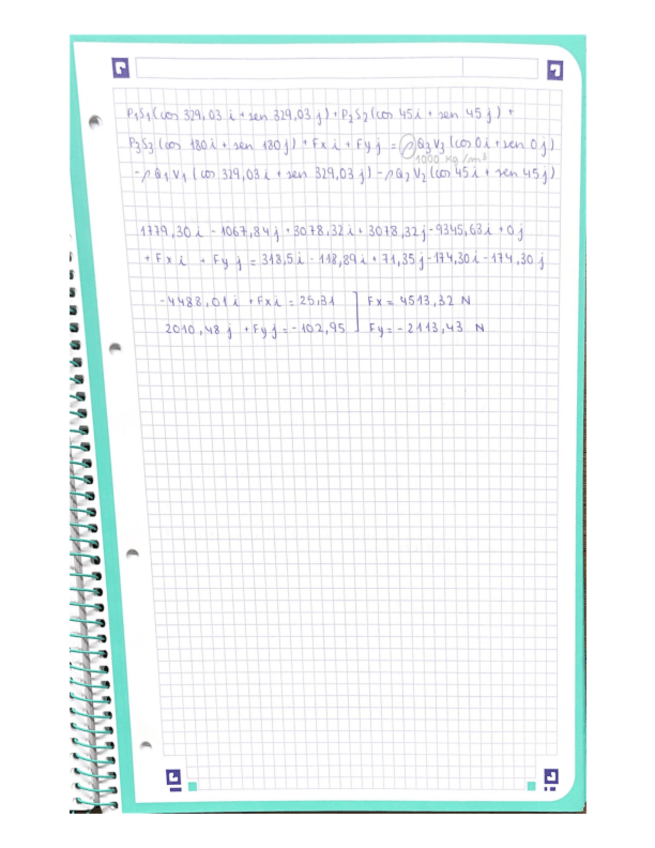 P₁S₁(cos 329,03 i + sen 329,03 j) + P₂S₂(cos 45i + sen 45 j) +
P₃S₃(cos 180i + sen 180j) + Fx i + Fy j = ρQ₃V₃(cos 0i + sen 0j)
1000 kg/m³
-ρQ₁V₁(cos 329,03i + sen 329,03j) - ρQ₂V₂(cos 45i + sen 45j)
1779,30i - 1067,84j + 3078,32i + 3078,32j - 9345,63i + 0j
+ Fx i + Fy j = 318,5i - 118,89i + 71,35j - 174,30i - 174,30j
-4488,01i + Fx i = 25,31 ] Fx = 4513,32 N
2010,48j + Fy j = -102,95 ] Fy = -2113,43 N